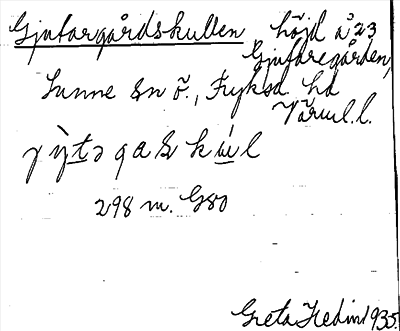 Gjutargårdskullen höjd å 23
Gjutaregården,
Sunne sn ö., Fryksd. hd
Värml. l.
298 m. GSO
Greta Hedin 1935.